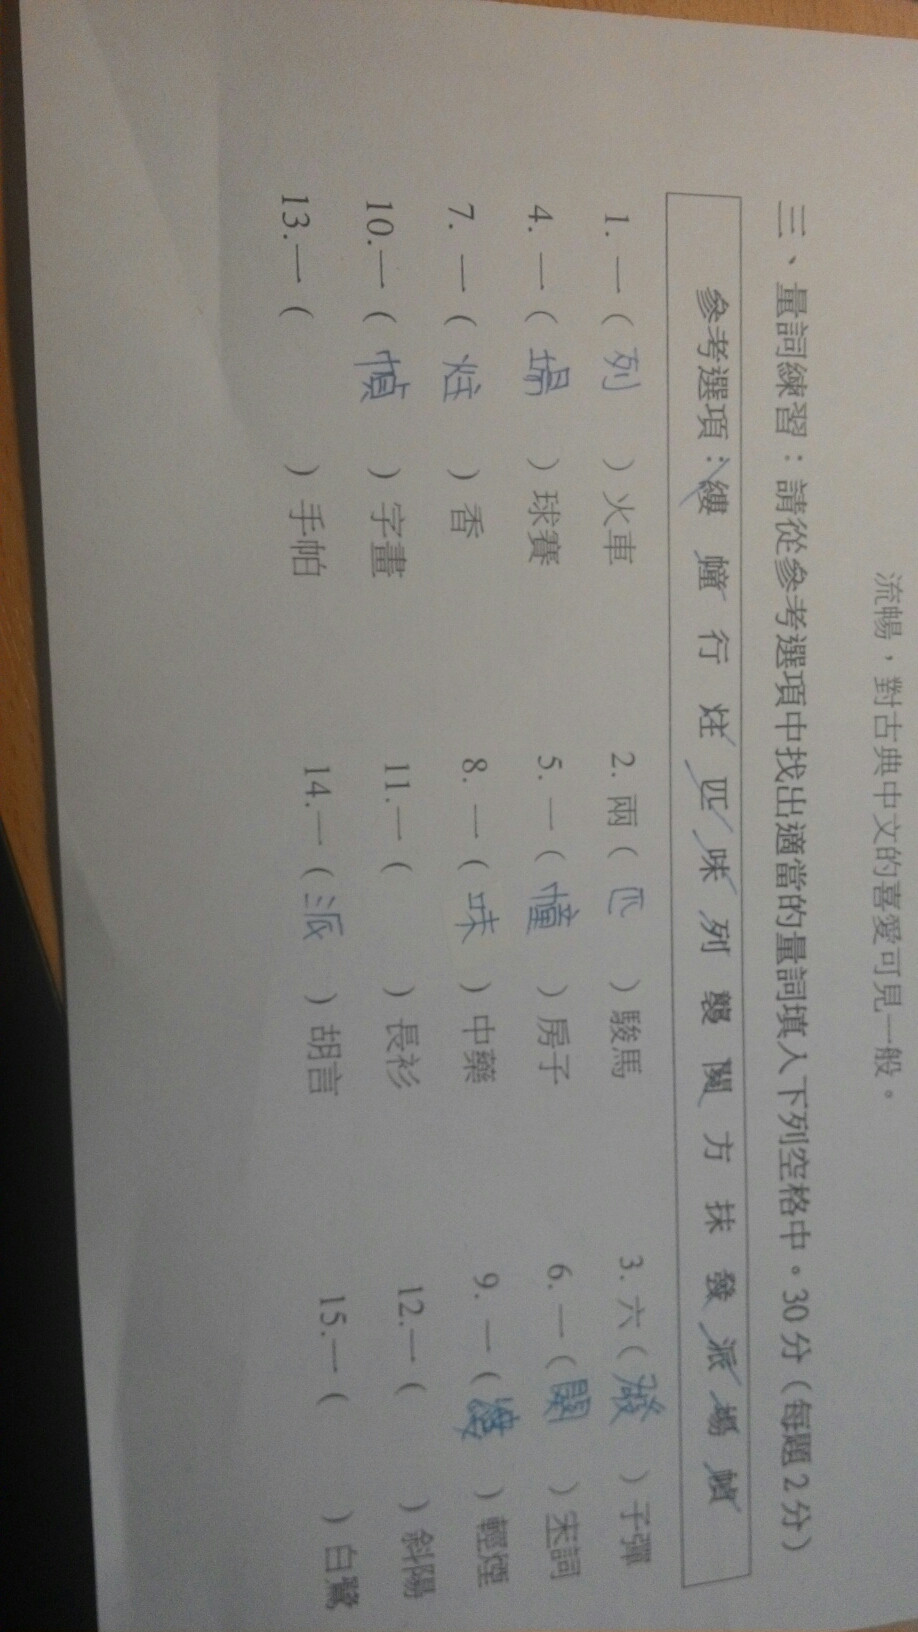 流暢，對古典中文的喜愛可見一般。
三、量詞練習：請從參考選項中找出適當的量詞填入下列空格中。30分（每題2分）
參考選項：縷 幢 行 炷 匹 味 列 襲 闋 方 抹 發 派 場 幀
1. 一（列）火車 2. 兩（匹）駿馬 3. 六（發）子彈
4. 一（場）球賽 5. 一（幢）房子 6. 一（闋）宋詞
7. 一（炷）香 8. 一（味）中藥 9. 一（縷）輕煙
10.一（幀）字畫 11.一（ ）長衫 12.一（ ）斜陽
13.一（ ）手帕 14.一（派）胡言 15.一（ ）白鷺